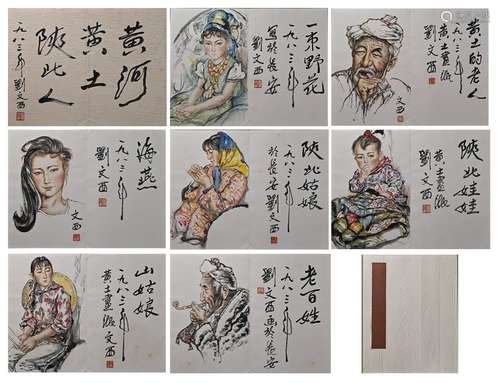 黄河
黄土
陝北人
一九八三年
劉文西
一束野花
一九八三年
寫於長安
劉文西
黄土的老人
一九八三年
黄土畫派
文西
海燕
一九八三年
劉文西
文西
陝北姑娘
一九八三年
於長安劉文西
陝北娃娃
一九八三年
黄土畫派
劉文西
山姑娘
一九八三年
黄土畫派文西
老百姓
一九八三年
劉文西画於長安